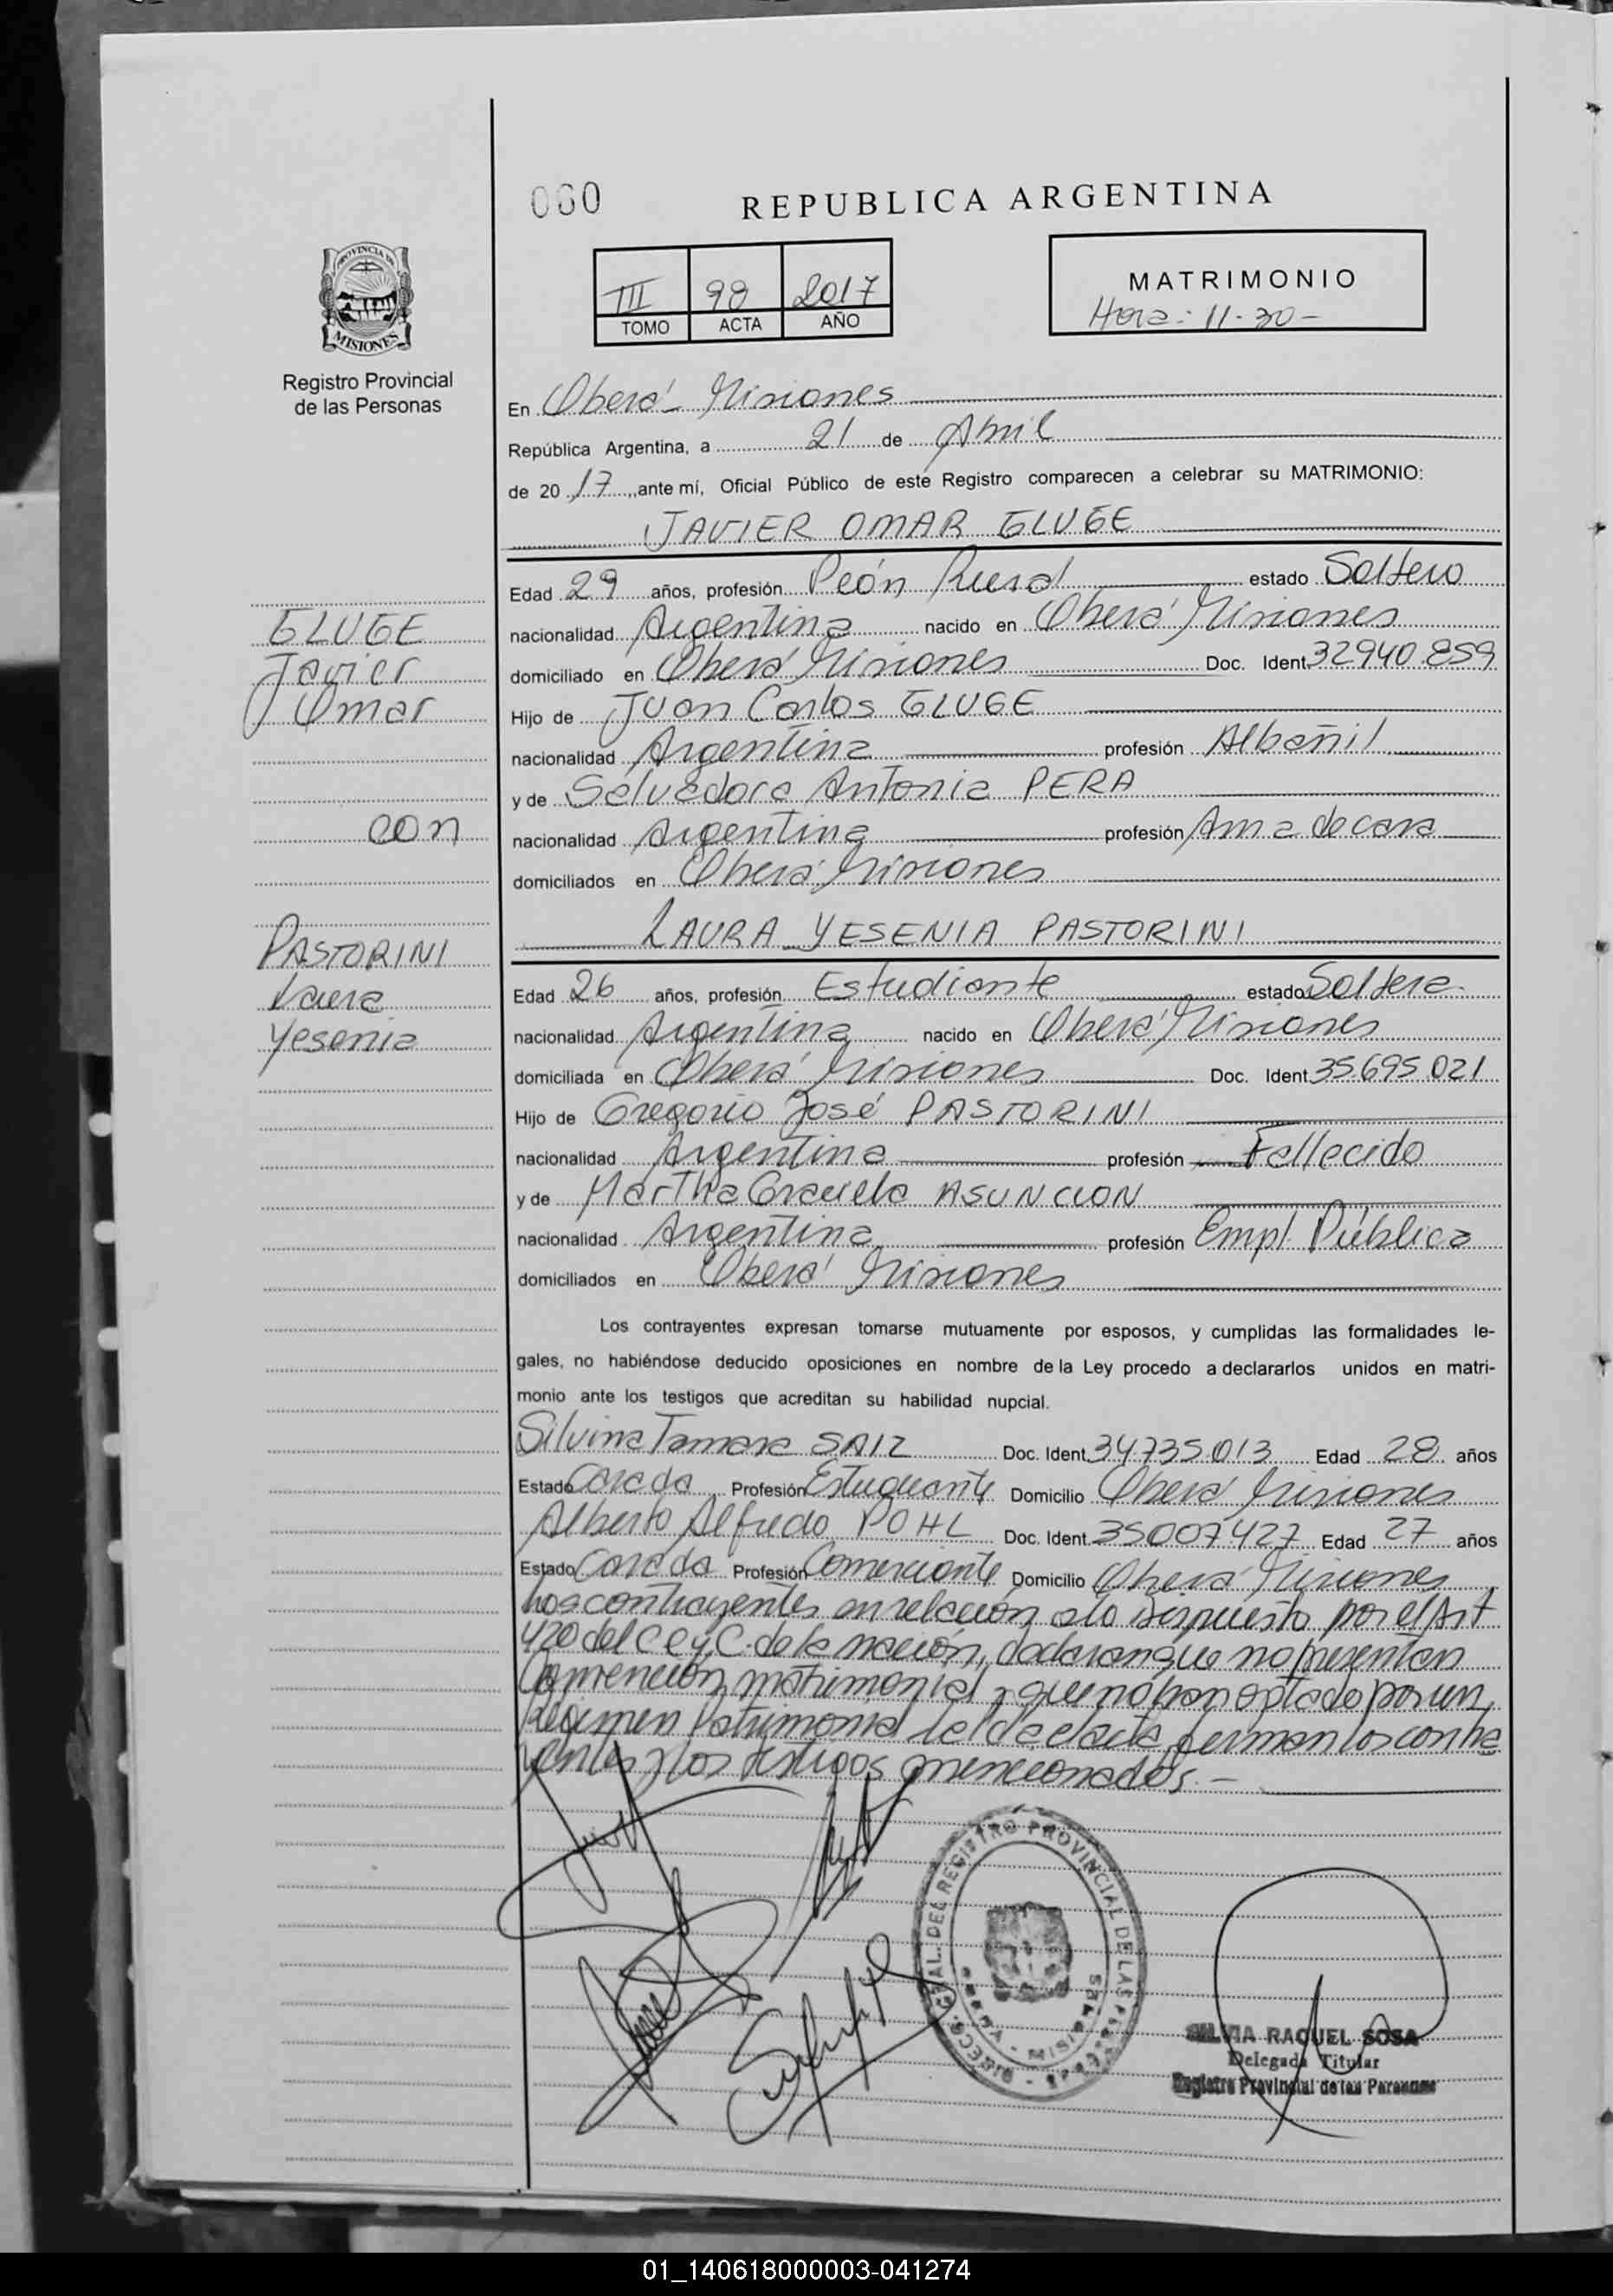 060
REPUBLICA ARGENTINA
PROVINCIA DE
MISIONES
Registro Provincial
de las Personas
III 98 2017
TOMO ACTA AÑO
MATRIMONIO
Hora: 11-30-
En Oberá - Misiones
República Argentina, a 21 de Abril
de 2017, ante mí, Oficial Público de este Registro comparecen a celebrar su MATRIMONIO:
JAVIER OMAR GLUGE
Edad 29 años, profesión Peón Rural estado Soltero
GLUGE
nacionalidad Argentina nacido en Oberá Misiones
Javier
domiciliado en Oberá Misiones Doc. Ident. 32940.859
Omar
Hijo de Juan Carlos GLUGE
nacionalidad Argentina profesión Albañil
y de Salvadora Antonia PERA
con
nacionalidad Argentina profesión Ama de casa
domiciliados en Oberá Misiones
LAURA YESENIA PASTORINI
PASTORINI
Laura
Yesenia
Edad 26 años, profesión Estudiante estado Soltera
nacionalidad Argentina nacido en Oberá Misiones
domiciliada en Oberá Misiones Doc. Ident. 35.695.021
Hijo de Gregorio José PASTORINI
nacionalidad Argentina profesión Fallecido
y de Martha Graciela ASUNCION
nacionalidad Argentina profesión Empl. Pública
domiciliados en Oberá Misiones
Los contrayentes expresan tomarse mutuamente por esposos, y cumplidas las formalidades le-
gales, no habiéndose deducido oposiciones en nombre de la Ley procedo a declararlos unidos en matri-
monio ante los testigos que acreditan su habilidad nupcial.
Silvina Tamara SAIZ Doc. Ident. 34.735.013 Edad 28 años
Estado Casada Profesión Estudiante Domicilio Oberá Misiones
Alberto Alfredo POHL Doc. Ident. 35007.427 Edad 27 años
Estado Casado Profesión Comerciante Domicilio Oberá Misiones
Los contrayentes en relación a lo dispuesto por el Art
420 del C C y C. de la nación, declaran que no presentan
Convención matrimonial y que no han optado por un
Régimen Patrimonial Leída el acta, firman los contra
yentes y los testigos mencionados.-
DEL REGISTRO PROVINCIAL DE LAS
SILVIA RAQUEL SOSA
Delegada Titular
Registro Provincial de las Personas
01_140618000003-041274